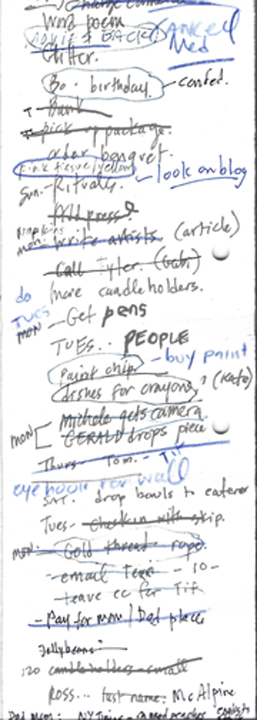 Word poem
Cancel
Med
Glitter.
Bo - birthday. - confed.
T - Bank
pick up package.
order bouquet.
pink tissue/yellow - look on blog
Sun. - Rituals.
Mon: write artists (article)
Call Tyler. (Gab)
do more candle holders.
TUES
MON - Get pens
TUES.. PEOPLE
Paint chip - buy paint
dishes for crayons? (Kate)
MON Michele gets camera
GERALD drops piece
Thurs - Tom. - Tif
eye hook for wall
SAT. drop bowls to caterer
Tues - check in with skip.
Mon: Gold thread - rope.
- email Team - 10 -
- leave cc for Tif
- Pay for mom / Dad place
Jellybeans
120 candleholders - small
Ross... last name: McAlpine